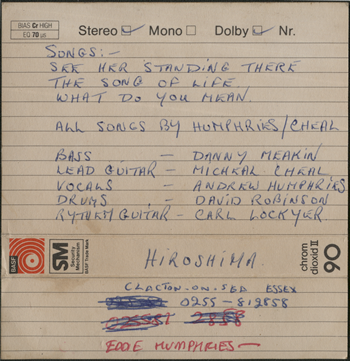 BIAS Cr HIGH
EQ 70 µs
Stereo Mono Dolby Nr.
SONGS:-
SEE HER STANDING THERE
THE SONG OF LIFE
WHAT DO YOU MEAN.
ALL SONGS BY HUMPHRIES/CHEAL
BASS - DANNY MEAKIN
LEAD GUITAR - MICHEAL CHEAL
VOCALS - ANDREW HUMPHRIES
DRUMS - DAVID ROBINSON
RYTHEM GUITAR - CARL LOCKYER
BASF
SM
Security
Mechanism
BASF Trade Mark
HIROSHIMA.
chrom
dioxid II
90
CLACTON-ON-SEA ESSEX
0255-812858
EDDE HUMPHRIES-